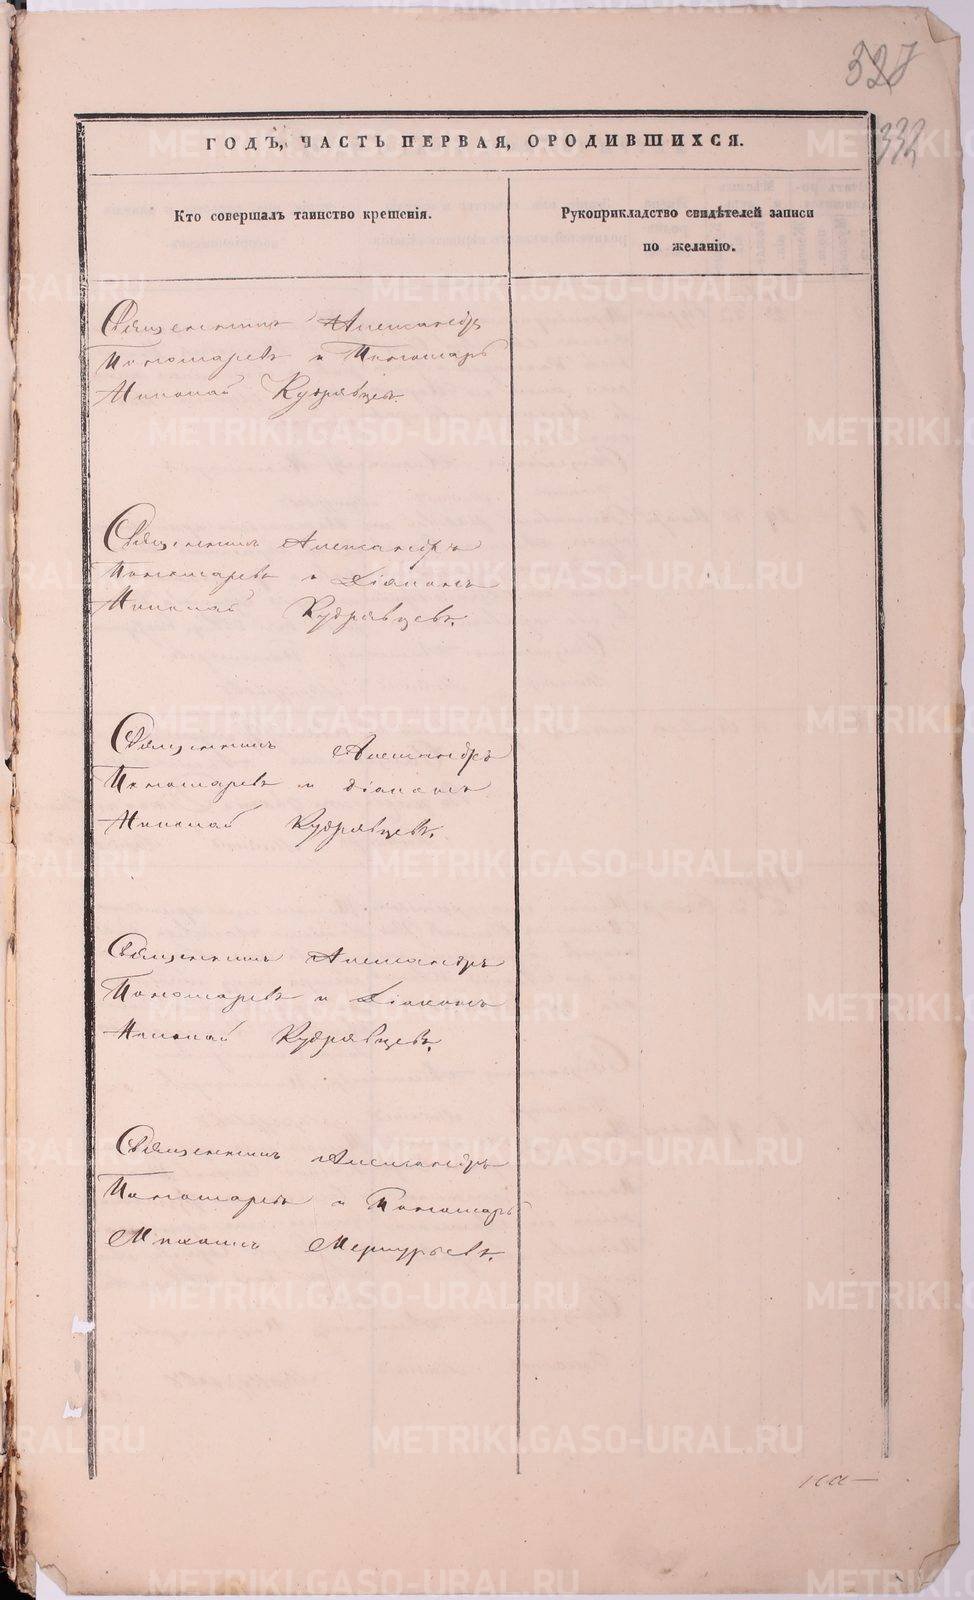 332
ГОДЪ, ЧАСТЬ ПЕРВАЯ, О РОДИВШИХСЯ.
Кто совершалъ таинство крещенія.
Рукоприкладство свидѣтелей записи
по желанію.
Священникъ Александръ
Пономаревъ и Пономарь
Николай Кудрявцевъ.
Священникъ Александръ
Пономаревъ и Діаконъ
Николай Кудрявцевъ.
Священникъ Александръ
Пономаревъ и діаконъ
Николай Кудрявцевъ.
Священникъ Александръ
Пономаревъ и Діаконъ
Николай Кудрявцевъ.
Священникъ Александръ
Пономаревъ и Пономарь
Михаилъ Меркурьевъ.
METRIKI.GASO-URAL.RU